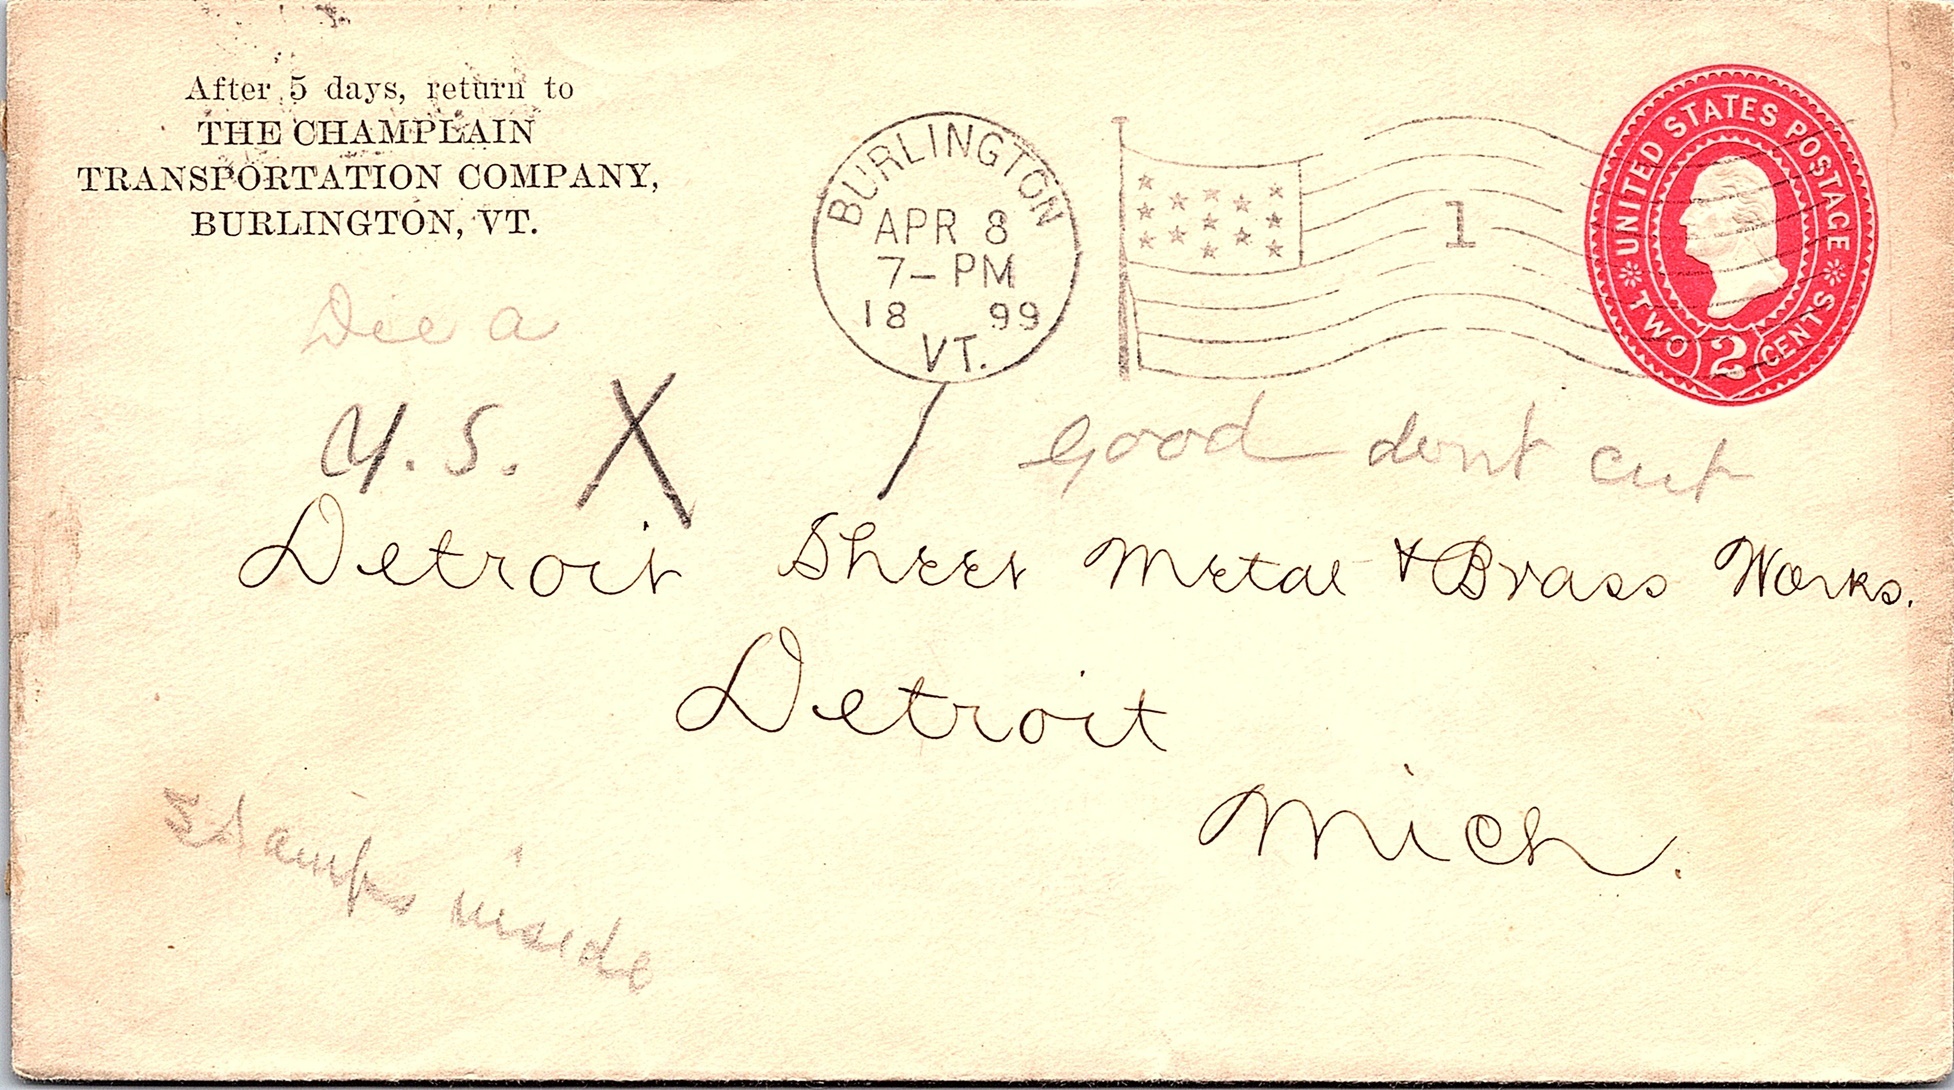 After 5 days, return to
THE CHAMPLAIN
TRANSPORTATION COMPANY,
BURLINGTON, VT.
BURLINGTON
APR 8
7- PM
18 99
VT.
1
UNITED STATES POSTAGE
TWO 2 CENTS
Die a
U.S. X / good dont cut
Detroit Sheet Metal & Brass Works.
Detroit
Mich.
Stamps inside